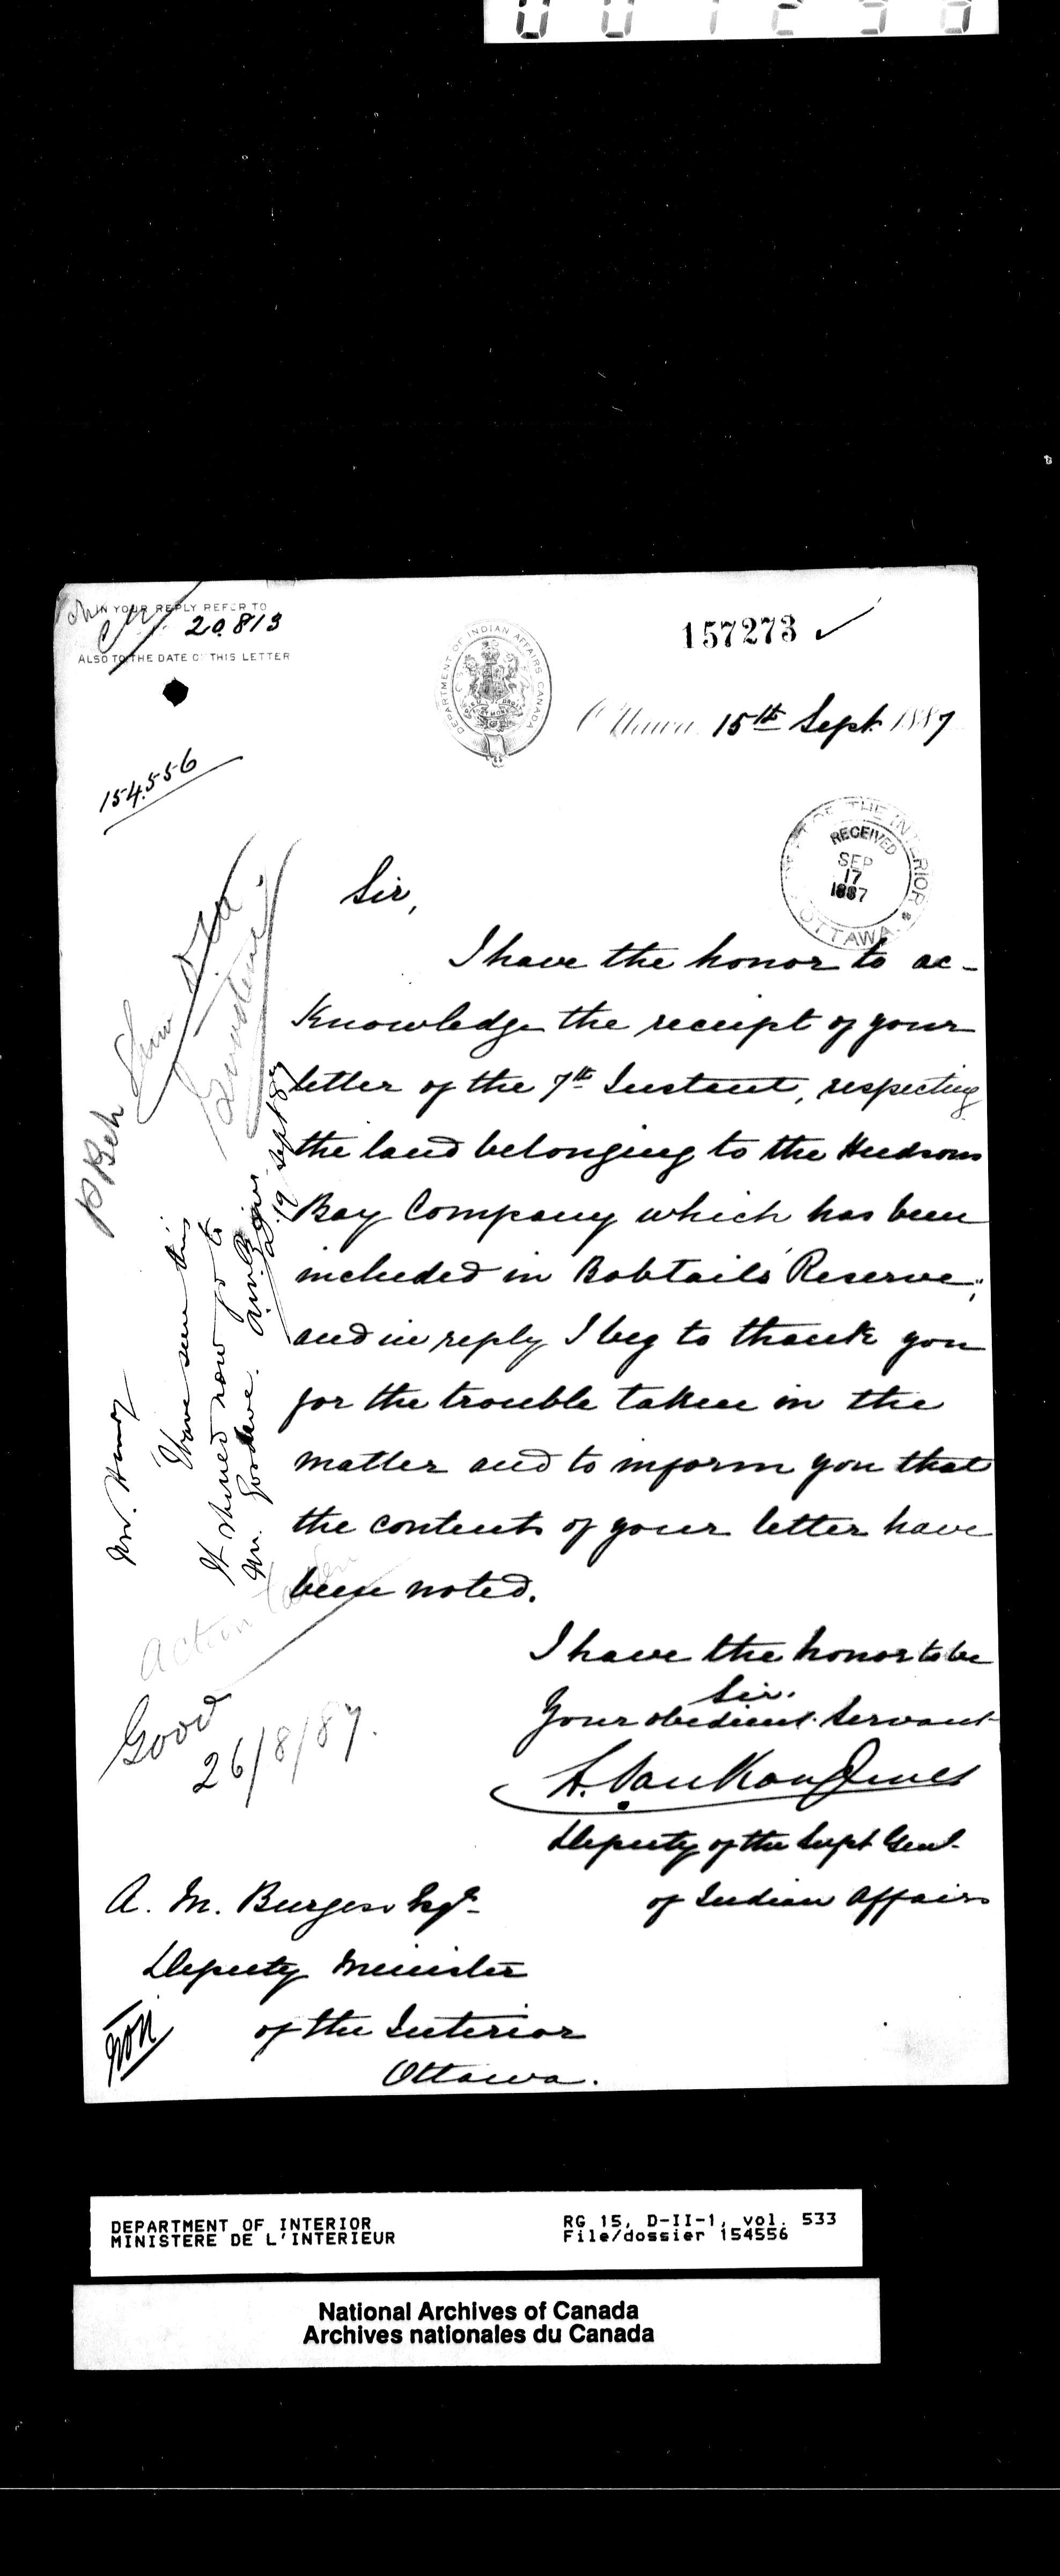 IN YOUR REPLY REFER TO
20.813
ALSO TO THE DATE OF THIS LETTER
157273 ✓
DEPARTMENT OF INDIAN AFFAIRS CANADA
Ottawa 15th Sept. 1887
154556
DEPT OF THE INTERIOR
RECEIVED
SEP
17
1887
OTTAWA
Sir,
I have the honor to ac-
knowledge the receipt of your
letter of the 7th Instant, respecting
the land belonging to the Hudsons
Bay Company which has been
included in Bobtail's Reserve;
and in reply I beg to thank you
for the trouble taken in the
matter and to inform you that
the contents of your letter have
been noted.
I have the honor to be
Sir.
Your obedient Servant
L. VanKoughnet
Deputy of the Supt Genl.
of Indian Affairs
A. M. Burgess Esqr.
Deputy Minister
of the Interior
Ottawa.
Mr. Henry
I have seen this;
It should now go to
Mr. Goodeve.
19 Sept 87
Action taken
Good
26/8/87.
DEPARTMENT OF INTERIOR
MINISTERE DE L'INTERIEUR
RG 15, D-II-1, vol. 533
File/dossier 154556
National Archives of Canada
Archives nationales du Canada